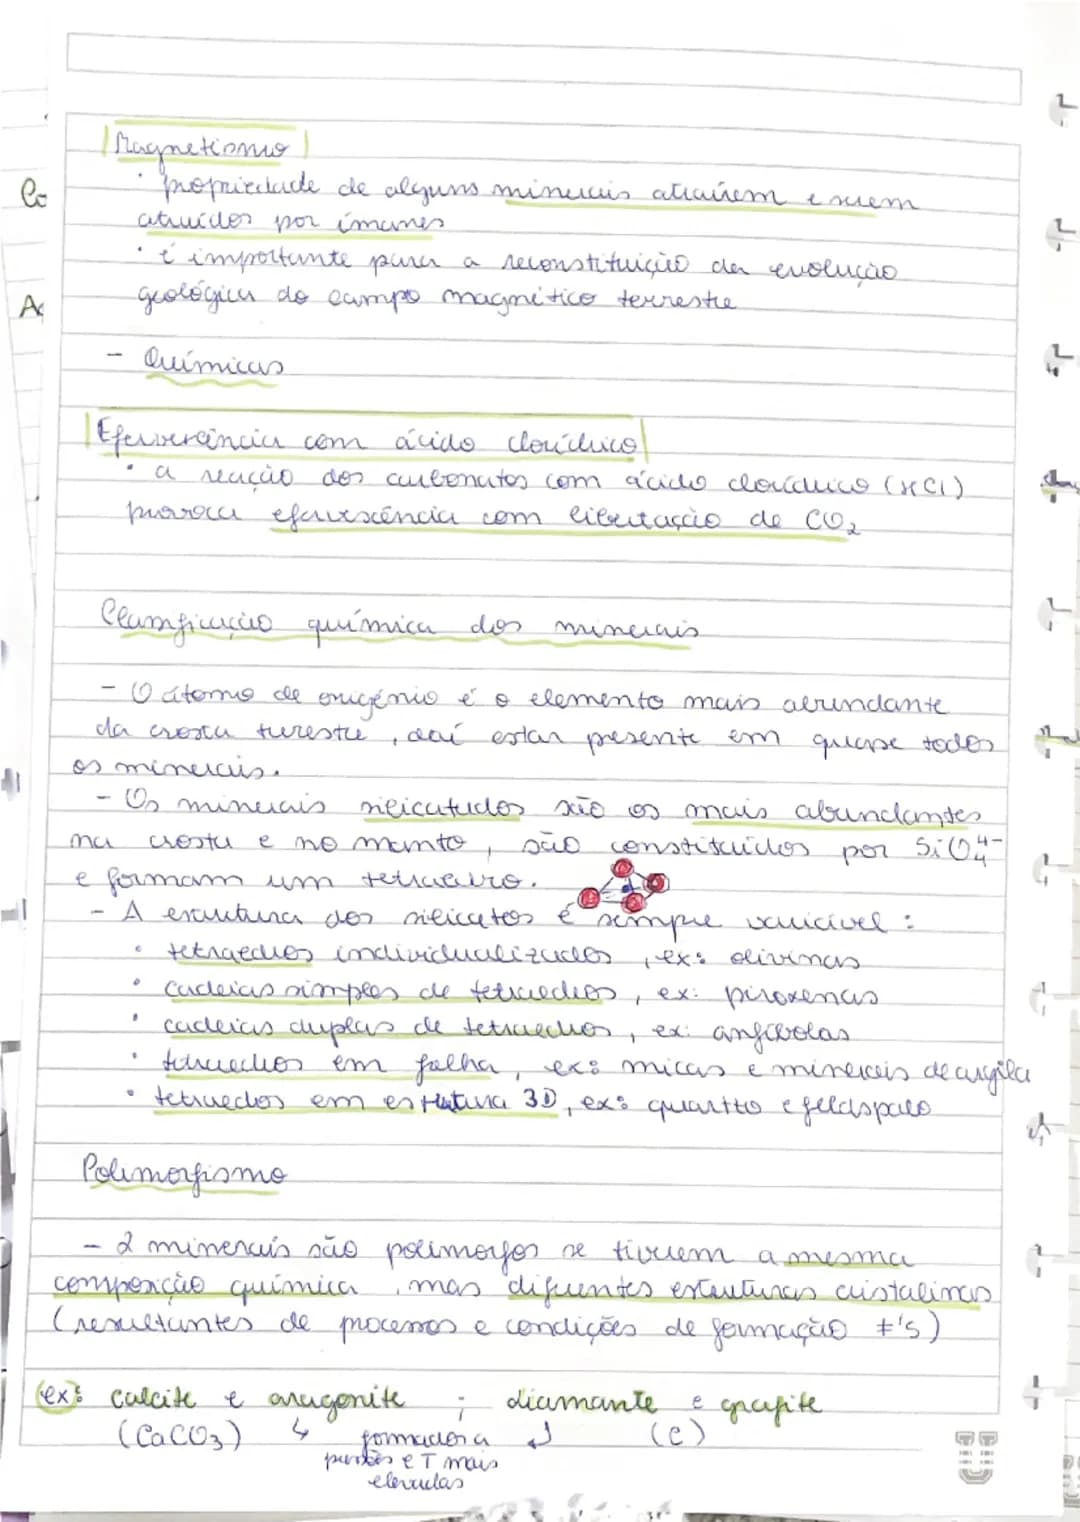 Magnetismo
· propriedade de alguns minerais atraírem e serem
atraídos por ímanes
· é importante para a reconstituição da evolução
geológica do campo magnético terrestre
- Químicas
Efervescência com ácido clorídrico
· a reação dos carbonatos com ácido clorídrico (HCl)
provoca efervescência com libertação de CO2
Classificação química dos minerais
- O átomo de oxigénio é o elemento mais abundante
da crosta terrestre, daí estar presente em quase todos
os minerais.
- Os minerais silicatados são os mais abundantes
na crosta e no manto, são constituídos por SiO4 4-
e formam um tetraedro.
- A estrutura dos silicatos é sempre variável :
· tetraedros individualizados, ex: olivinas
· cadeias simples de tetraedros, ex: piroxenas
· cadeias duplas de tetraedros, ex: anfíbolas
· tetraedros em folha, ex: micas e minerais de argila
· tetraedos em estrutura 3D, ex: quartzo e feldspato
Polimorfismo
- 2 minerais são polimorfos se tiverem a mesma
composição química, mas diferentes estruturas cristalinas
(resultantes de processos e condições de formação ≠'s)
ex: calcite e aragonite ; diamante e grafite
(CaCO3) ↳ formados a ↲ (C)
pressões e T mais
elevadas
Co
A